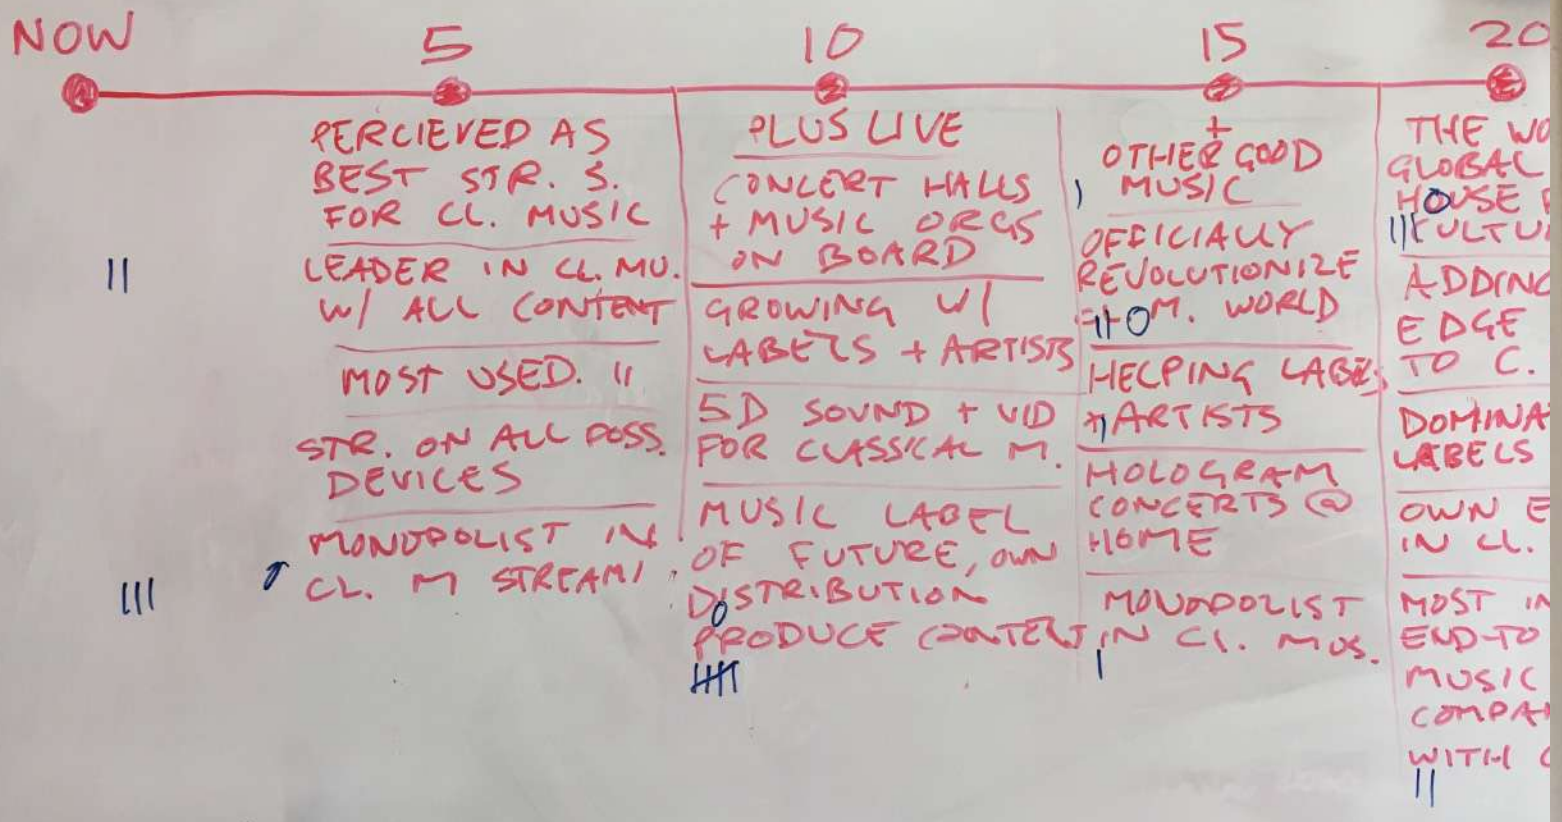 NOW
5
10
15
20
PERCIEVED AS
BEST STR. S.
FOR CL. MUSIC
LEADER IN CL. MU.
W/ ALL CONTENT
MOST USED. 11
STR. ON ALL POSS.
DEVICES
MONOPOLIST IN
CL. M STREAM
PLUS LIVE
CONCERT HALLS
+ MUSIC ORGS
ON BOARD
GROWING W/
LABELS + ARTISTS
5D SOUND + VID
FOR CLASSICAL M.
MUSIC LABEL
OF FUTURE, OWN
DISTRIBUTION
PRODUCE CONTENT
+
OTHER GOOD
MUSIC
OFFICIALLY
REVOLUTIONIZE
M. WORLD
HELPING LABELS
+ ARTISTS
HOLOGRAM
CONCERTS @
HOME
MONOPOLIST
IN CL. MUS.
THE WO
GLOBAL
HOUSE
CULTU
ADDING
EDGE
TO C.
DOMINA
LABELS
OWN E
IN CL.
MOST IN
END-TO
MUSIC
COMPA
WITH